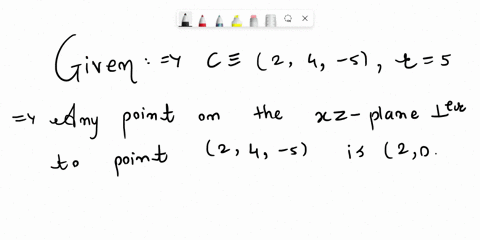 Given : ⇒ C ≡ (2, 4, -5), r = 5
⇒ Any point on the xz-plane ⊥ler
to point (2, 4, -5) is (2, 0.